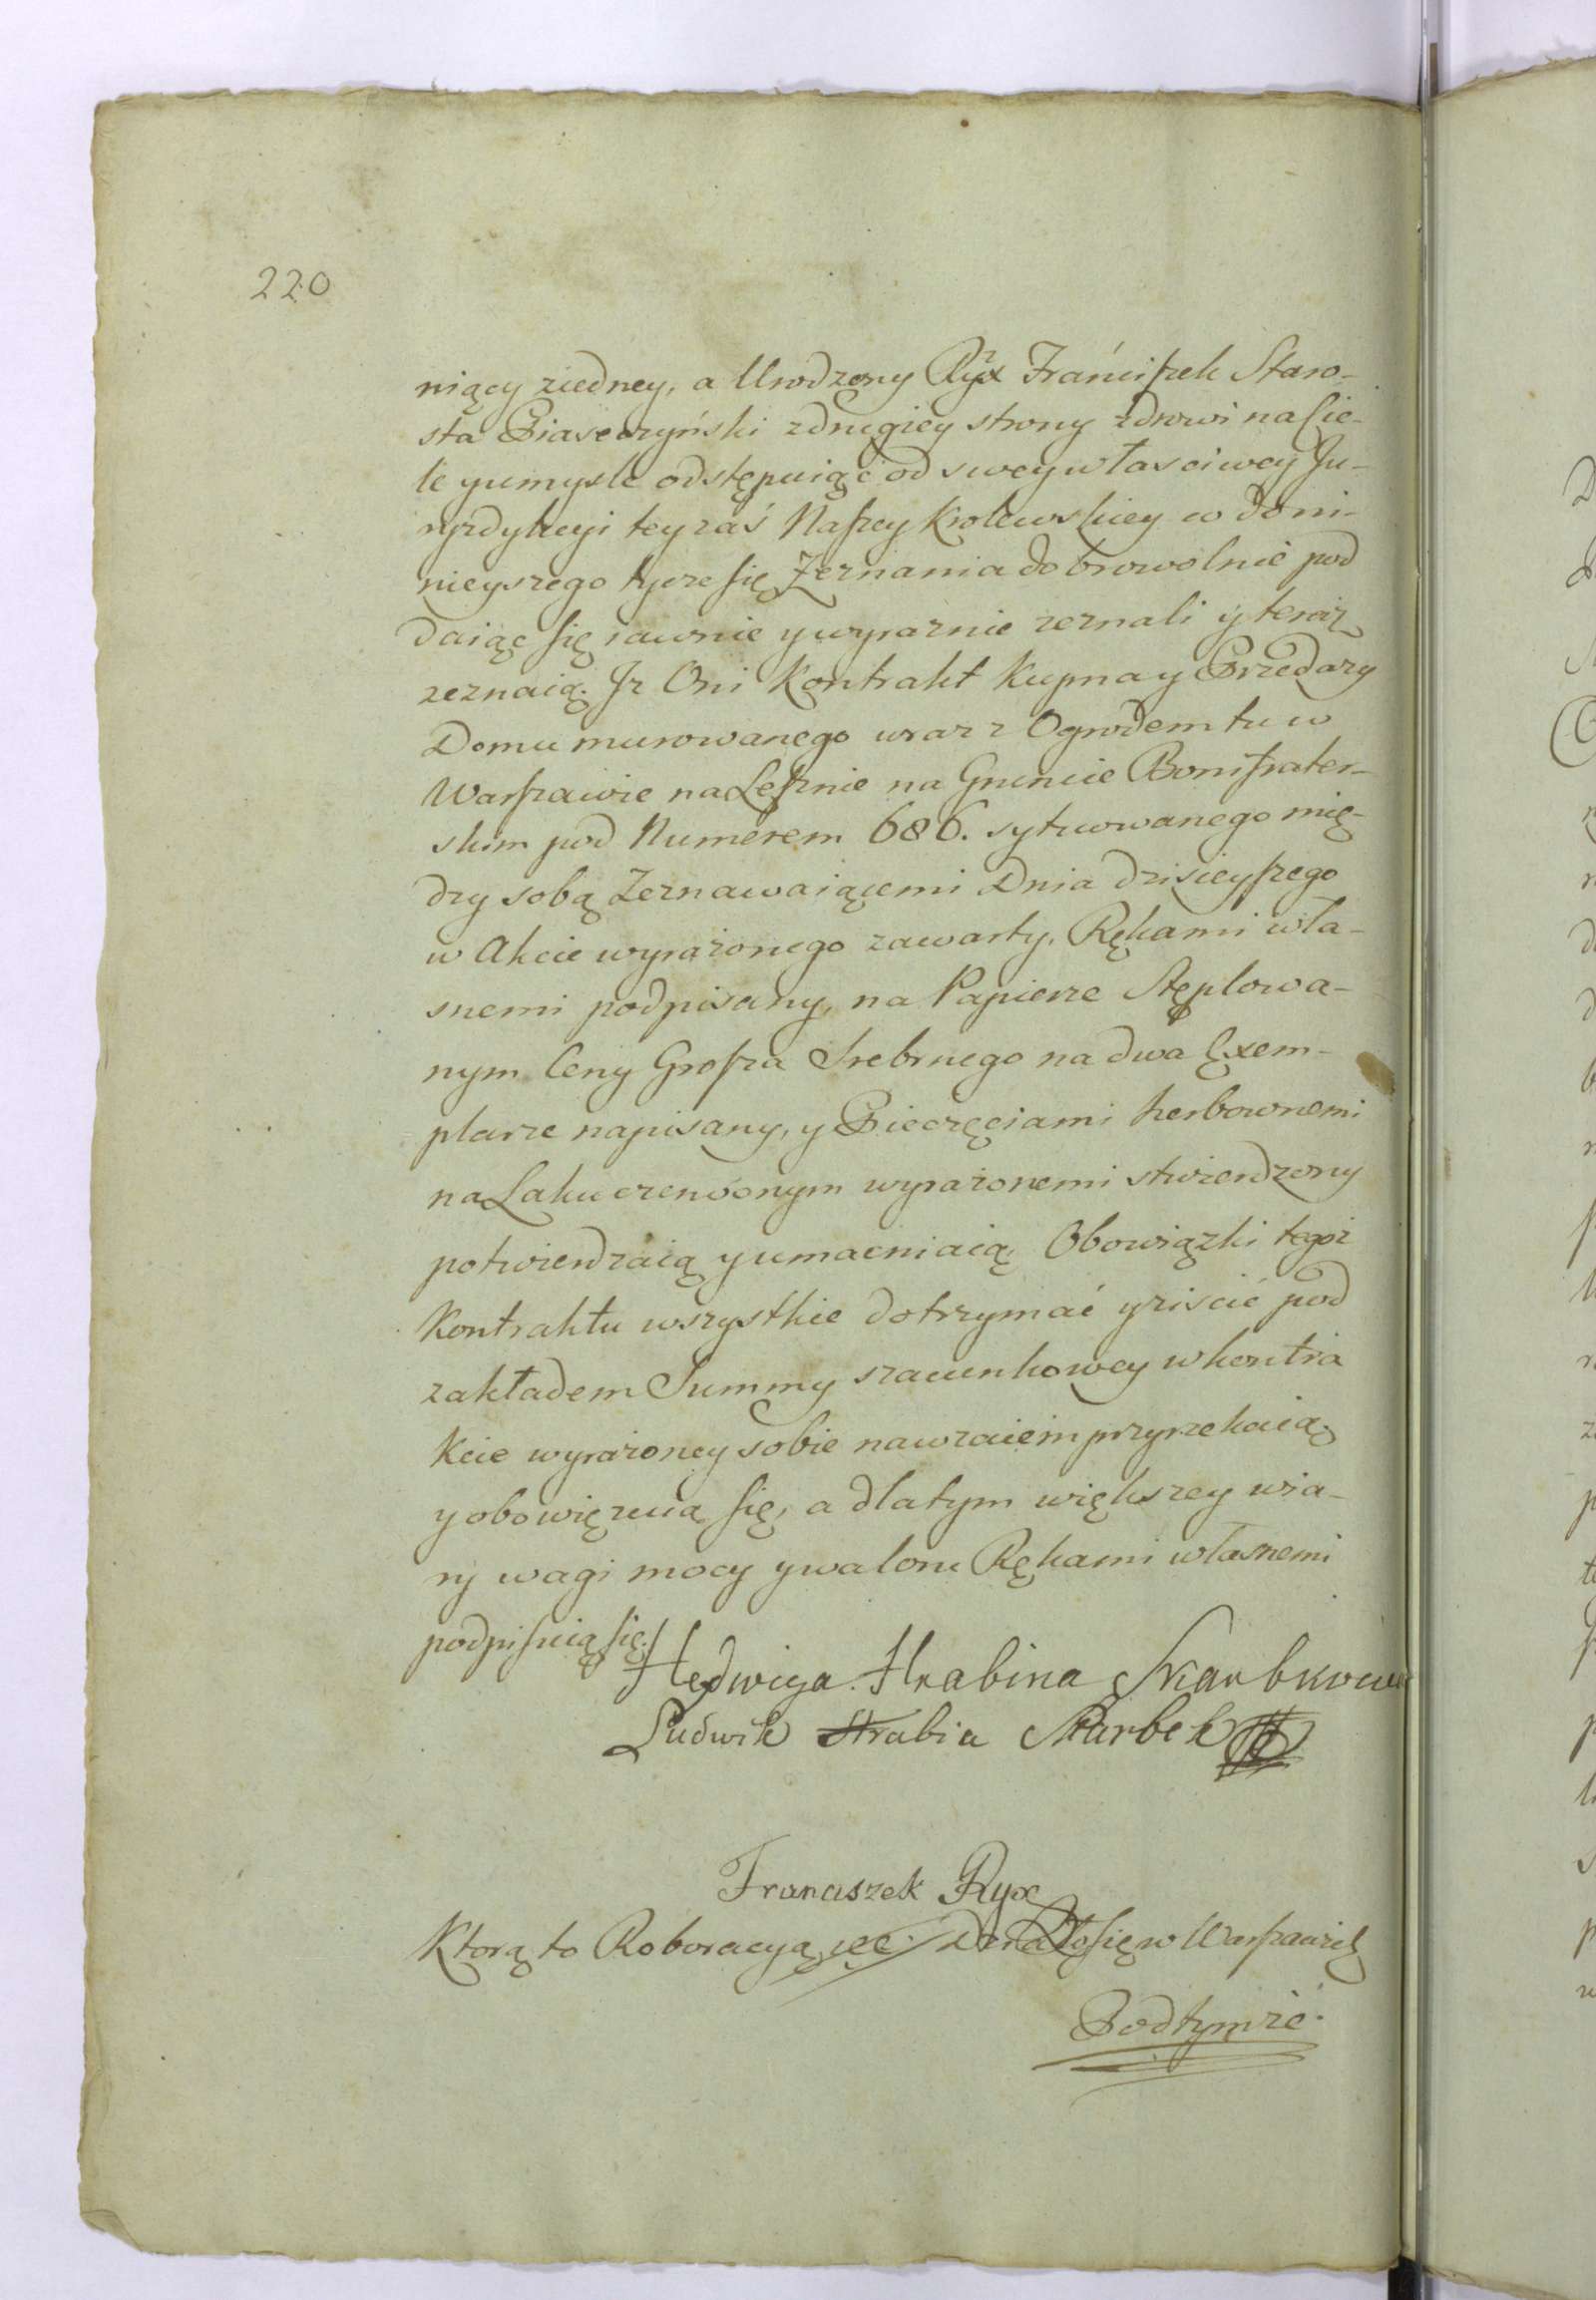 220
niący ziedney, a Urodzony Ryx Franciszek Staro-
sta Piaseczyński zdrugiey strony zdrowi na Cie-
le yumysle odstępuiąc od swey własciwey Ju-
ryzdykcyi tey zaś Naszey Krolewskiey w do ni-
nieyszego tycze się Zeznania dobrowolnie pod
daiąc się iawnie y wyraznie zeznali y teraz
zeznaią. Iz Oni Kontrakt Kupna y Przedazy
Domu murowanego wraz z Ogrodem tu w
Warszawie na Lesznie na Gruncie Bonifrater-
skim pod Numerem 686. sytuowanego mię-
dzy sobą Zeznawaiącemi Dnia dzisieyszego
w Akcie wyrażonego zawarty, Rękami wła-
snemi podpisany, na Papierze Stęplowa-
nym Ceny Grosza Srebrnego na dwa Exem-
plarze napisany, y Pieczęciami herbownemi
na Laku czerwonym wyrażonemi stwierdzony
potwierdzaią y umacniaią, Obowiązki tegoż
Kontraktu wszystkie dotrzymać y ziscić pod
zakładem Summy szacunkowey w kontra
kcie wyrażoney sobie nawzaiem przyrzekaią
y obowięzuią się, a dla tym większey wia-
ry wagi mocy y waloru Rękami własnemi
podpisuią się.
Hedwiga Hrabina Skarbkowa
Ludwik Hrabia Skarbek
Franciszek Ryx
Ktorą to Roboracyą etc. Działo się w Warszawie
Pod tymże.